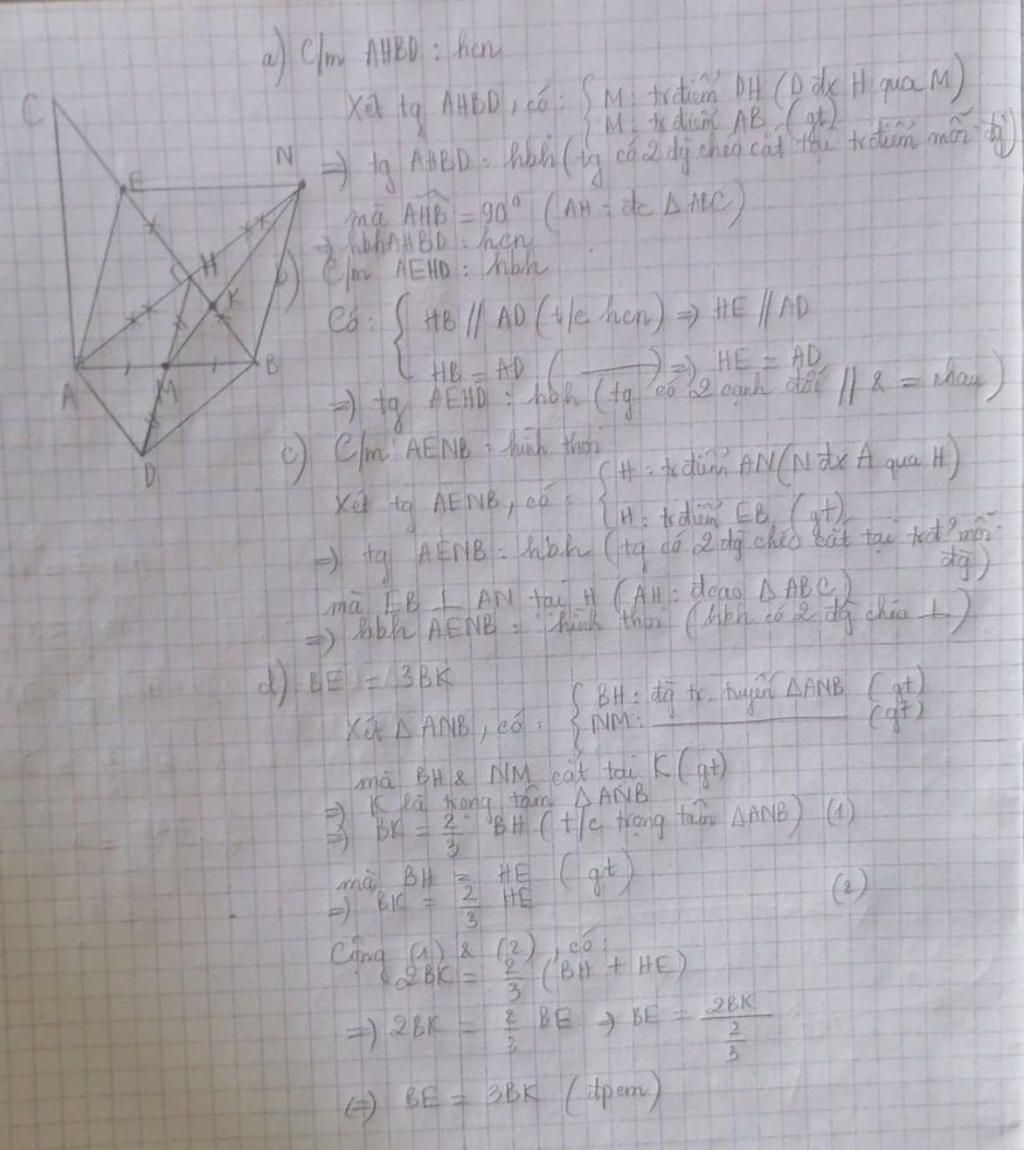 a) C/m AHBD : hcn
Xét tg AHBD, có: { M: trđiểm DH (D đx H qua M)
M: trđiểm AB (gt)
=> tg AHBD: hbh (tg có 2 đg chéo cắt tại trđiểm mỗi đg)
mà AHB = 90° (AH: đc Δ ABC)
=> hbh AHBD: hcn
b) C/m AEHD: hbh
Có: { HB // AD (t/c hcn) => HE // AD
HB = AD ( ——— ) => HE = AD
=> tg AEHD: hbh (tg có 2 cạnh đối // & = nhau)
c) C/m AENB: hình thoi
Xét tg AENB, có: { H: trđiểm AN (N đx A qua H)
H: trđiểm EB (gt)
=> tg AENB: hbh (tg có 2 đg chéo cắt tại trđ² mỗi
đg)
mà EB ⊥ AN tại H (AH: đcao Δ ABC)
=> hbh AENB: hình thoi (hbh có 2 đg chéo ⊥)
d) BE = 3BK
Xét Δ ANB, có: { BH: đg tr. tuyến ΔANB (gt)
NM: ——————— (gt)
mà BH & NM cắt tại K (gt)
=> K là trọng tâm ΔANB
=> BK = 2/3 BH (t/c trọng tâm ΔANB) (1)
mà BH = HE (gt)
=> BK = 2/3 HE (2)
Cộng (1) & (2), có:
2BK = 2/3 (BH + HE)
=> 2BK = 2/3 BE → BE = 2BK / (2/3)
(=) BE = 3BK (đpcm)
C
E
N
H
K
A
M
B
D